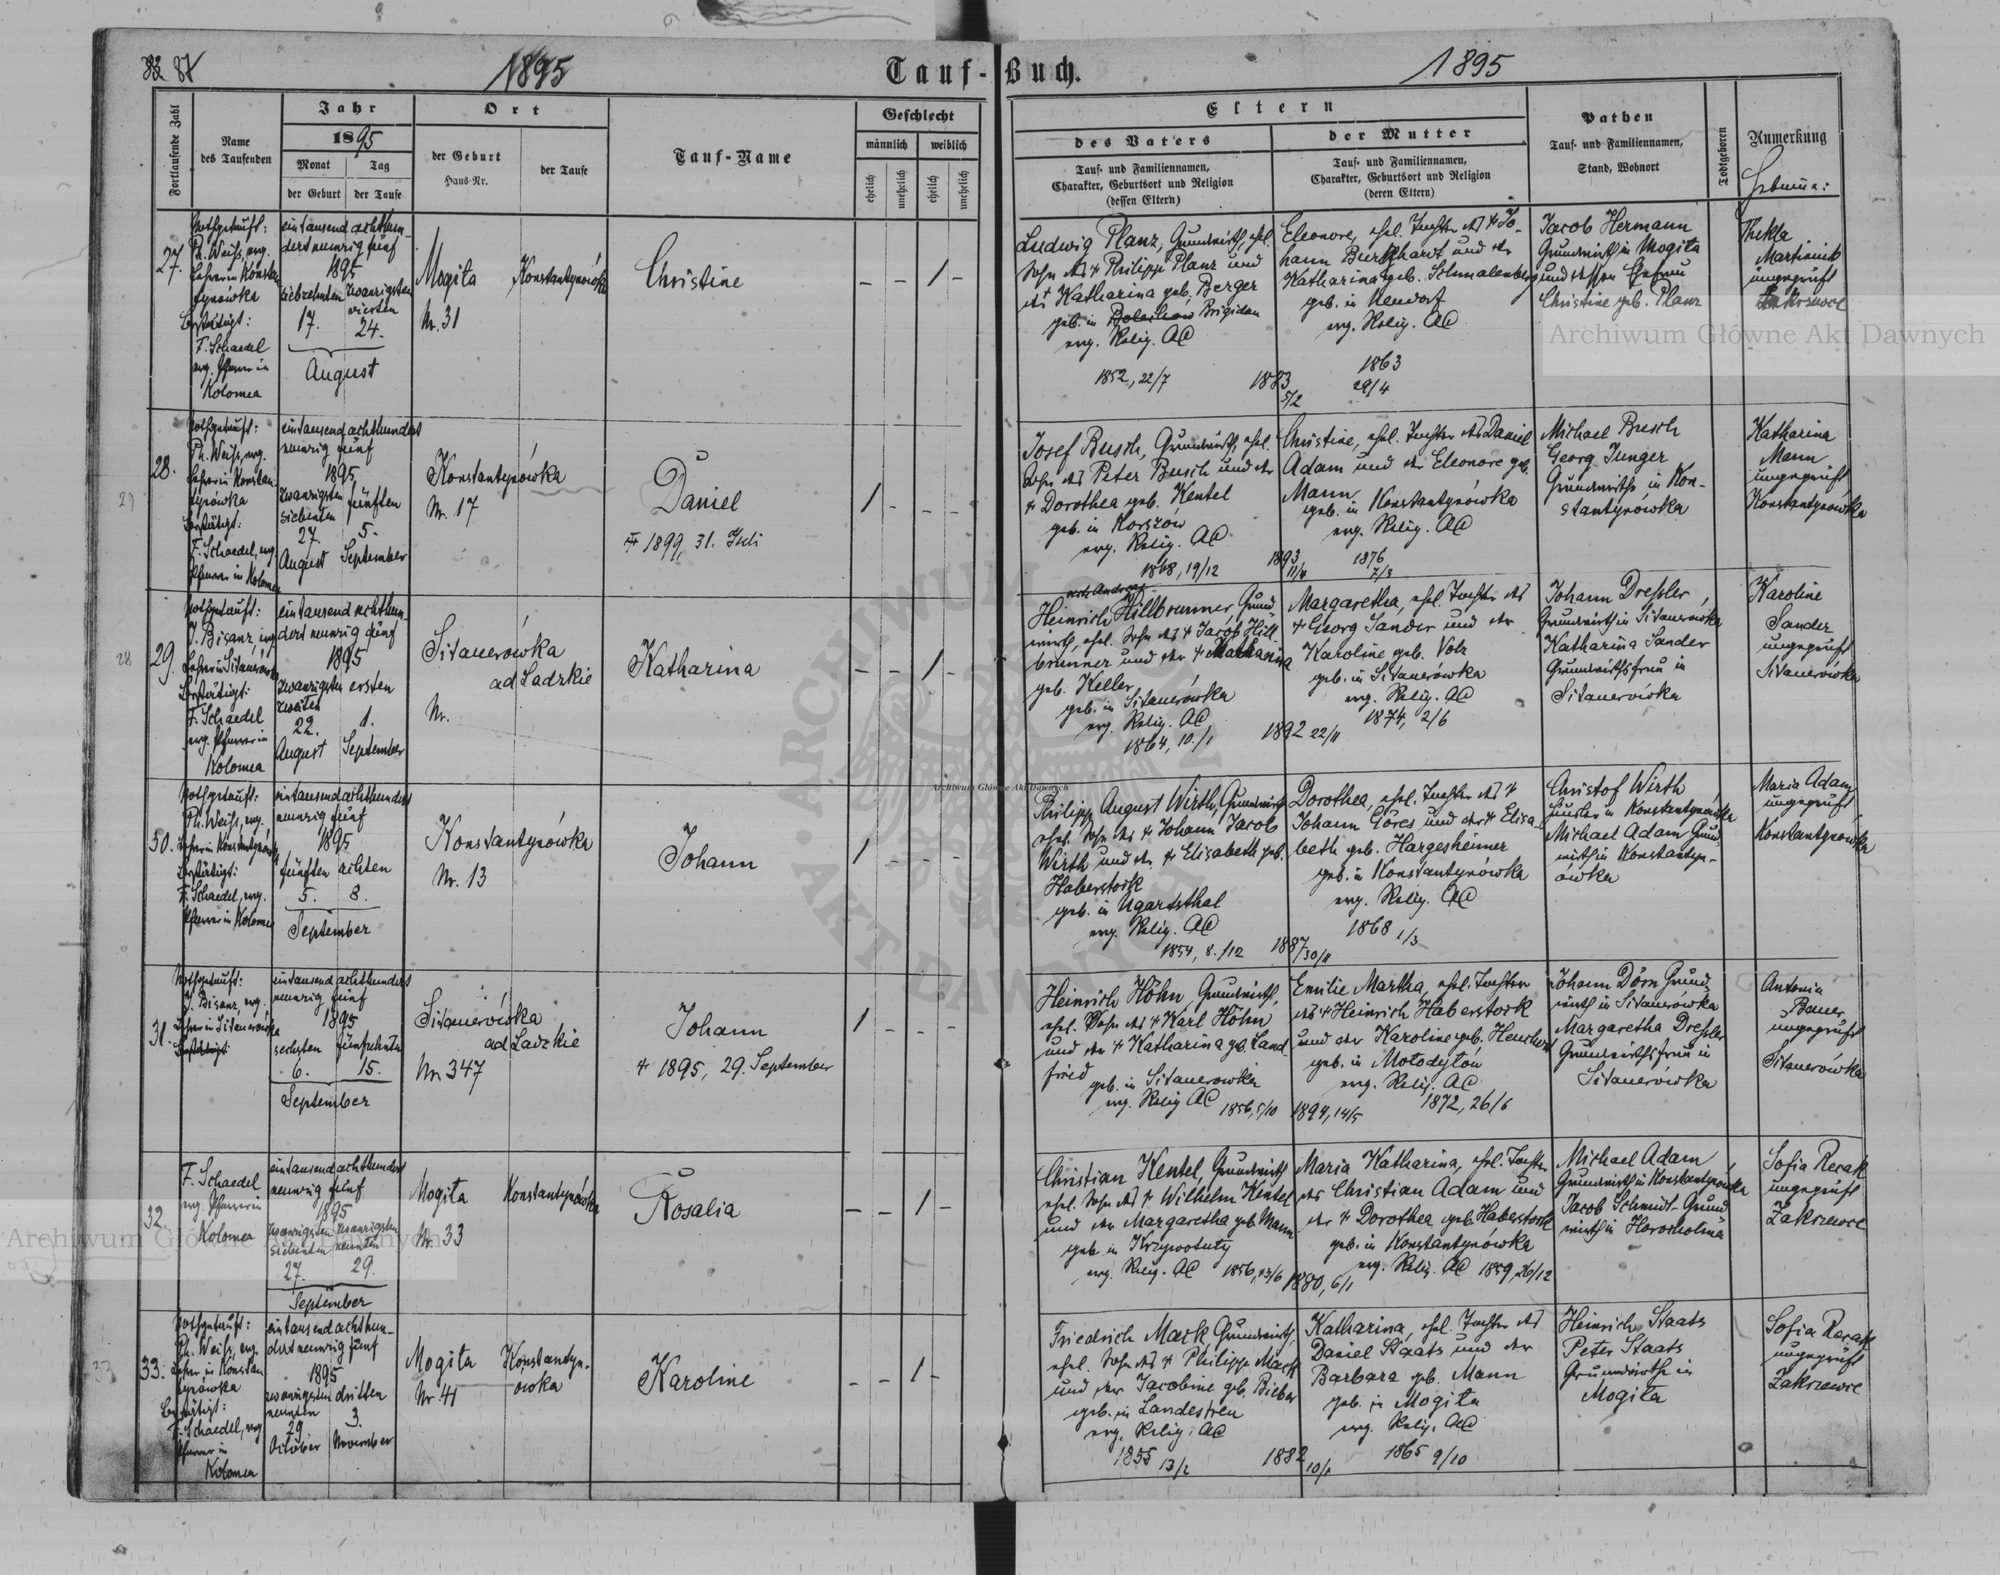 87
1895
Tauf-Buch.
1895
Fortlaufende Zahl
Name
des Taufenden
Jahr
1895
Monat
Tag
der Geburt
der Taufe
Ort
der Geburt
Haus-Nr.
der Taufe
Tauf-Name
Geschlecht
männlich
weiblich
ehelich
unehelich
ehelich
unehelich
Eltern
des Vaters
Tauf- und Familiennamen,
Charakter, Geburtsort und Religion
(dessen Eltern)
der Mutter
Tauf- und Familiennamen,
Charakter, Geburtsort und Religion
(deren Eltern)
Pathen
Tauf- und Familiennamen,
Stand, Wohnort
Todtgeboren
Anmerkung
27.
Nothgetauft:
Ph. Weiss, evg.
Lehrer in Konstan
tynówka
Bestätigt:
F. Schaedel
evg. Pfarrer in
Kolomea
eintausend achthun-
dert neunzig fünf
1895
siebzehnten
zwanzigsten
vierten
17.
24.
August
Mogita
Nr. 31
Konstantynówka
Christine
– – 1 –
Ludwig Planz, Grundwirth, ehel.
Sohn des + Philipp Planz und
der + Katharina geb. Berger
geb. in Brigidau
evg. Relig. AC
1852, 22/7
1883
5/2
Eleonore, ehel. Tochter des + Jo-
hann Burghardt und der
Katharina geb. Schmalenberg
geb. in Neudorf
evg. Relig. AC
1863
29/4
Jacob Hermann
Grundwirth in Mogita
und dessen Ehefrau
Christine geb. Planz
Thekla
Martiniuk
ungeprüft
Zakrzewce
28.
29
Nothgetauft:
Ph. Weiss, evg.
Lehrer in Konstan-
tynówka
Bestätigt:
F. Schaedel, evg.
Pfarrer in Kolomea
eintausend achthundert
neunzig fünf
1895
zwanzigsten
siebenten
fünften
27.
5.
August
September
Konstantynówka
Nr. 17
Daniel
+ 1899, 31. Juli
1 – – –
Josef Busch, Grundwirth, ehel.
Sohn des Peter Busch und der
+ Dorothea geb. Kentel
geb. in Korszów
evg. Relig. AC
1868, 19/12
1893
11/4
Christine, ehel. Tochter des Daniel
Adam und der Eleonore geb.
Mann
geb. in Konstantynówka
evg. Relig. AC
1876
7/3
Michael Busch
Georg Junger
Grundwirthe in Kon-
stantynówka
Katharina
Mann
ungeprüft
Konstantynówka
29.
28
Nothgetauft:
J. Bisanz, evg.
Lehrer in Sitauerówka
Bestätigt:
F. Schaedel
evg. Pfarrer in
Kolomea
eintausend achthun-
dert neunzig fünf
1895
zwanzigsten
zweiten
ersten
22.
1.
August
September
Sitauerówka
ad Ladzkie
Nr.
Katharina
– – 1 –
Heinrich Hillbrunner, Grund
wirth, ehel. Sohn des + Jacob Hill-
brunner und der + Katharina
geb. Keller
geb. in Sitauerówka
evg. Relig. AC
1864, 10./1
1892 22/11
Margaretha, ehel. Tochter des
+ Georg Sander und der
Karoline geb. Volz
geb. in Sitauerówka
evg. Relig. AC
1874, 2/6
Johann Dressler,
Grundwirth in Sitauerówka
Katharina Sander
Grundwirthsfrau in
Sitauerówka
Karoline
Sander
ungeprüft
Sitauerówka
30.
Nothgetauft:
Ph. Weiss, evg.
Lehrer in Konstantynówka
Bestätigt:
F. Schaedel, evg.
Pfarrer in Kolomea
eintausend achthundert
neunzig fünf
1895
fünften
achten
5.
8.
September
Konstantynówka
Nr. 13
Johann
1 – – –
Philipp August Wirth, Grundwirth
ehel. Sohn des + Johann Jacob
Wirth und der + Elisabeth geb.
Haberstock
geb. in Ugartsthal
evg. Relig. AC
1854, 8./12
1887
30/11
Dorothea, ehel. Tochter des +
Johann Göres und der + Elisa-
beth geb. Hargesheimer
geb. in Konstantynówka
evg. Relig. AC
1868 1/3
Christof Wirth
in Konstantynówka
Michael Adam Grund
wirth in Konstantyn-
ówka
Maria Adam
ungeprüft
Konstantynówka
31.
Nothgetauft:
J. Bisanz, evg.
Lehrer in Sitauerówka
Bestätigt:
eintausend achthundert
neunzig fünf
1895
sechsten
fünfzehnten
6.
15.
September
Sitauerówka
ad Ladzkie
Nr. 347
Johann
+ 1895, 29. September
1 – – –
Heinrich Höhn, Grundwirth,
ehel. Sohn des + Karl Höhn
und der + Katharina geb. Land-
fried
geb. in Sitauerowka
evg. Relig AC
1856, 5/10
1894, 14/5
Emilie Martha, ehel. Tochter
des + Heinrich Haberstock
und der Karoline geb.
geb. in Mołodyłów
evg. Relig. AC
1872, 26/6
Johann Dörn Grund
wirth in Sitauerówka
Margaretha Dressler
Grundwirthsfrau in
Sitauerówka
Antonia
Bauer
ungeprüft
Sitauerówka
32.
F. Schaedel
evg. Pfarrer in
Kolomea
eintausend achthundert
neunzig fünf
1895
zwanzigsten
siebenten
zwanzigsten
neunten
27.
29.
September
Mogita
Nr. 33
Konstantynówka
Rosalia
– – 1 –
Christian Kentel, Grundwirth
ehel. Sohn des + Wilhelm Kentel
und der Margaretha geb. Mann
geb. in Krzywotuty
evg. Relig. AC
1856, 23/6
1880, 6/1
Maria Katharina, ehel. Tochter
des Christian Adam und
der + Dorothea geb. Haberstock
geb. in Konstantynówka
evg. Relig. AC 1859, 26/12
Michael Adam
Grundwirth in Konstantynówka
Jacob Schmidt Grund
wirth in Horocholina
Sofia Recak
ungeprüft
Zakrzewce
33.
33
Nothgetauft:
Ph. Weiss, evg.
Lehrer in Konstan
tynówka
Bestätigt:
F. Schaedel, evg
Pfarrer in
Kolomea
eintausend achthun-
dert neunzig fünf
1895
zwanzigsten
neunten
dritten
29
3.
October
November
Mogita
Nr. 41
Konstantyn-
ówka
Karoline
– – 1 –
Friedrich Mack, Grundwirth,
ehel. Sohn des + Philipp Mack
und der Jacobine geb. Bieber
geb. in Landestreu
evg. Relig. AC
1855 13/2
1882
10/1
Katharina, ehel. Tochter des
Daniel Staats und der
Barbara geb. Mann
geb. in Mogita
evg. Relig. AC
1865 9/10
Heinrich Staats
Peter Staats
Grundwirthe in
Mogita
Sofia Recak
ungeprüft
Zakrzewce
Archiwum Główne Akt Dawnych
Archiwum Główne Akt Dawnych
Archiwum Główne Akt Dawnych